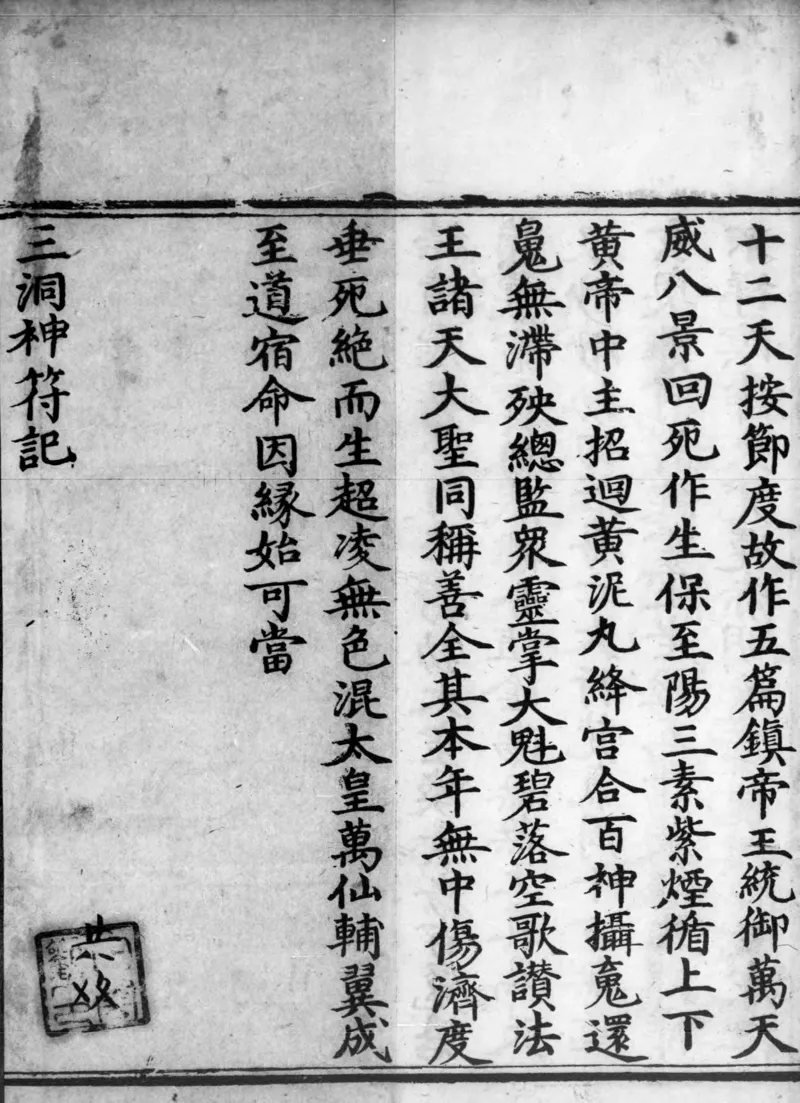 十二天按節度故作五篇鎮帝王統御萬天
威八景回死作生保至陽三素紫煙循上下
黃帝中主招迴黃泥丸絳宮合百神攝䰟還
𩲸無滯殃總監眾靈掌大魁碧落空歌讃法
王諸天大聖同稱善全其本年無中傷濟度
垂死絶而生超凌無色混太皇萬仙輔翼成
至道宿命因緣始可當
三洞神符記
共